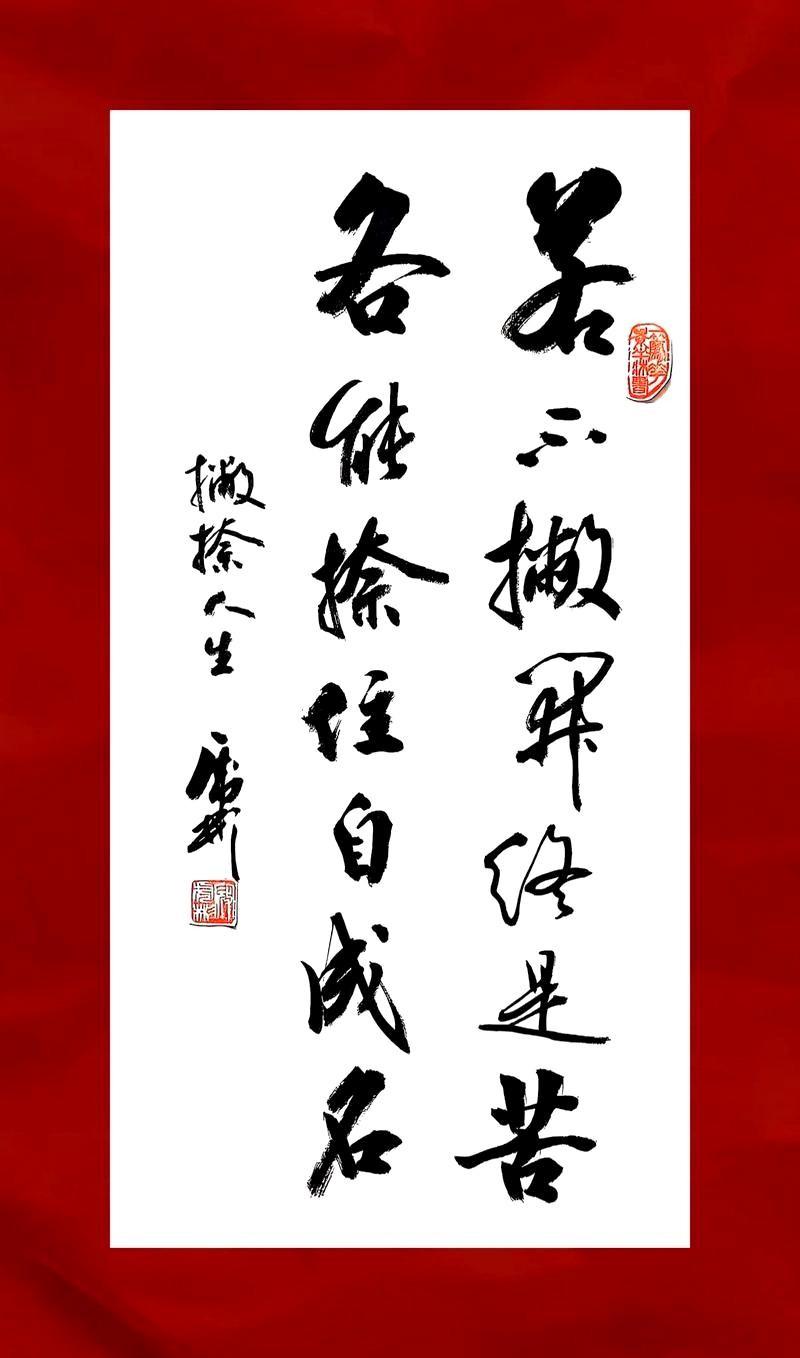 若不撇開终是苦
各能捺住自成名
撇捺人生